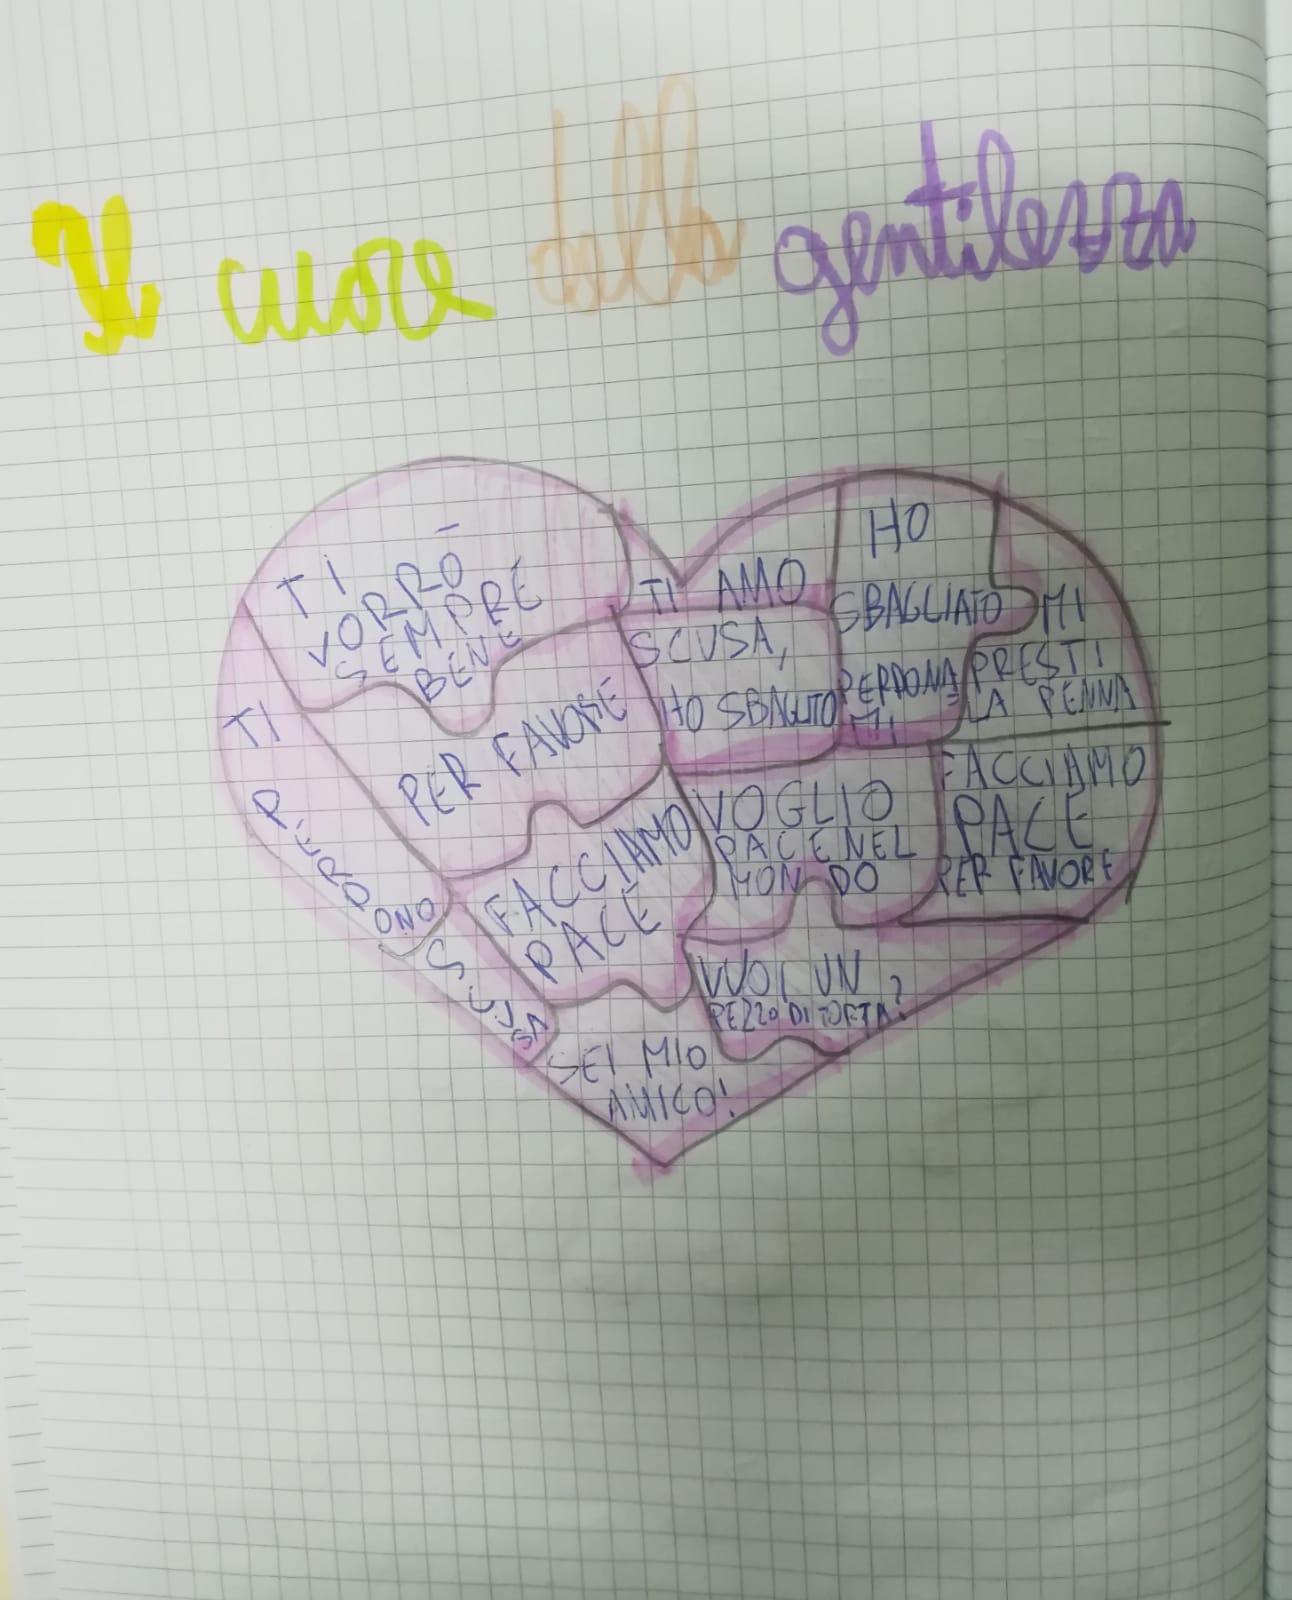 Il cuore della gentilezza
TI
VORRÒ
SEMPRE
BENE
TI AMO
HO
SBAGLIATO
PERDONA
MI
MI
PRESTI
LA PENNA
SCUSA,
HO SBAGLITO
TI
PERDONO
PER FAVORE
FACCIAMO
PACE
VOGLIO
PACE NEL
MONDO
FACCIAMO
PACE
PER FAVORE
SCUSA
VUOI UN
PEZZO DI TORTA?
SEI MIO
AMICO!